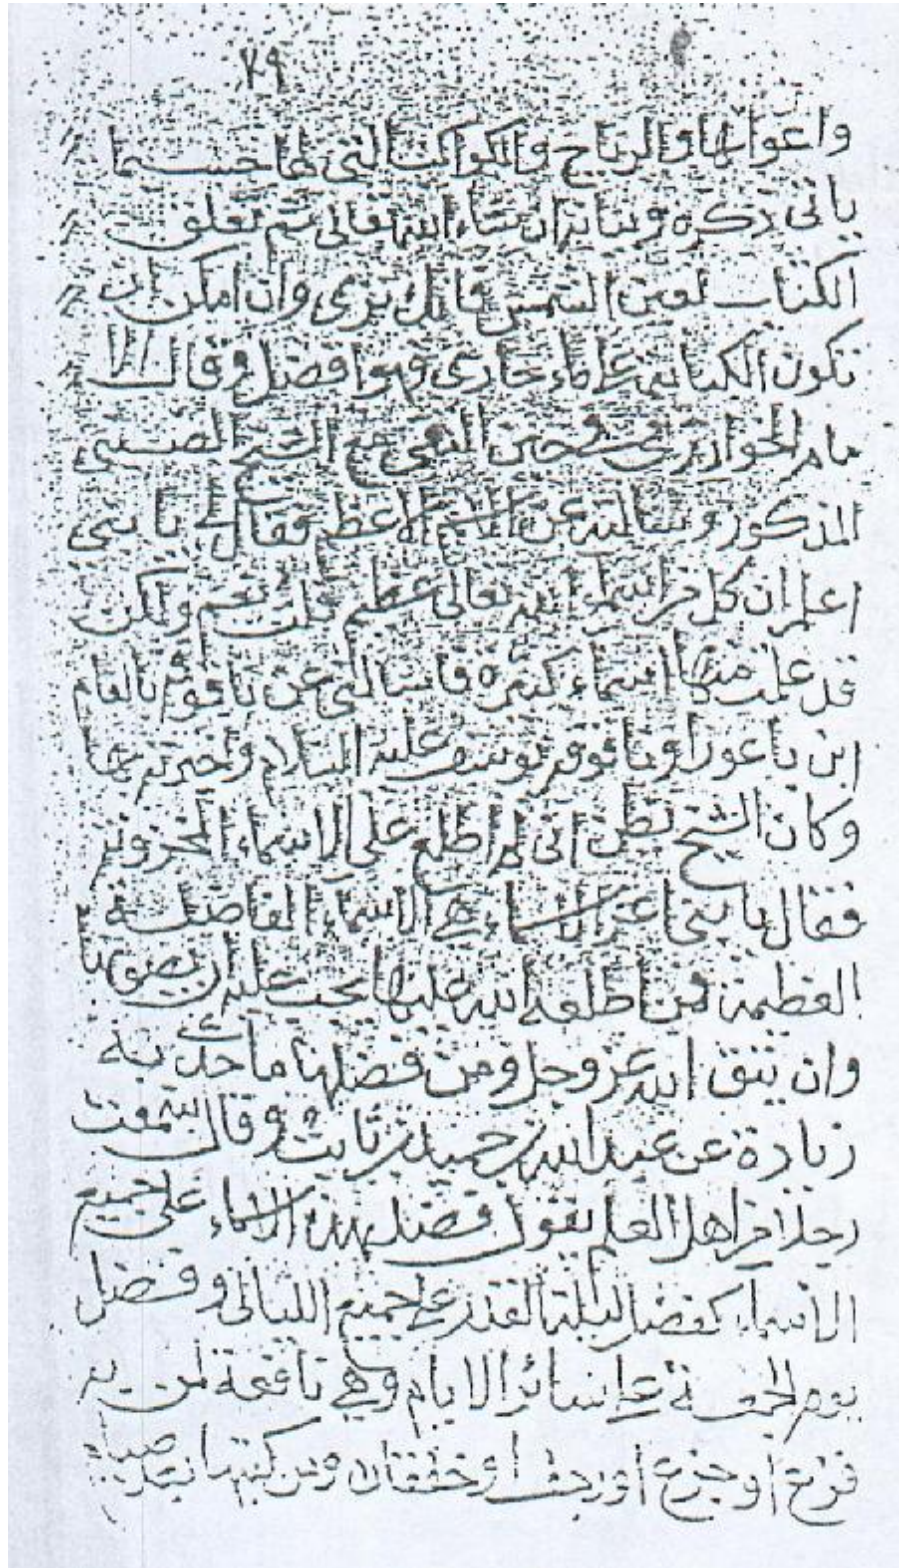 ٧٩
واعوانها والرياح والكواكب التي لها حسبما
ياتي ذكره وبيانه ان شاء الله تعالى ثم تعلق
الكتاب لعين الشمس فانك ترى وان امكن ان
تكون الكتابة على ماء جارى فهو افضل وقال الا
مام الخوارزمى وحين التقى مع الشيخ
المذكور وسالته عن الاسم الاعظم فقال لى يا بنى
اعلم ان كل من اسماء الله تعالى عظيم قلت نعم ولكن
قد علمت منها اسماء كثيرة فاسالنى عن يا قوم بالعام
ابن باعورا و يوسف عليه السلام واخبرته بها
وكان الشيخ يظن انى لم اطلع على الاسماء المخزونه
فقال يا بنى هذه الاسماء هي الاسماء الفاضلة
العظيمة فمن اطلعه الله عليها يجب عليه ان يصونها
وان يتق الله عز وجل ومن فضلها ما حدث به
زيادة عن عبد الله بن حميد بن ثابت وقال سمعت
رجلا من اهل العلم يقول فضل هذه الاسماء على جميع
الاسماء كفضل ليلة القدر على جميع الليالى وفضل
يوم الجمعة على سائر الايام وهي نافعة لمن به
فزع او جزع او رجف او خفقان ومن كتبها